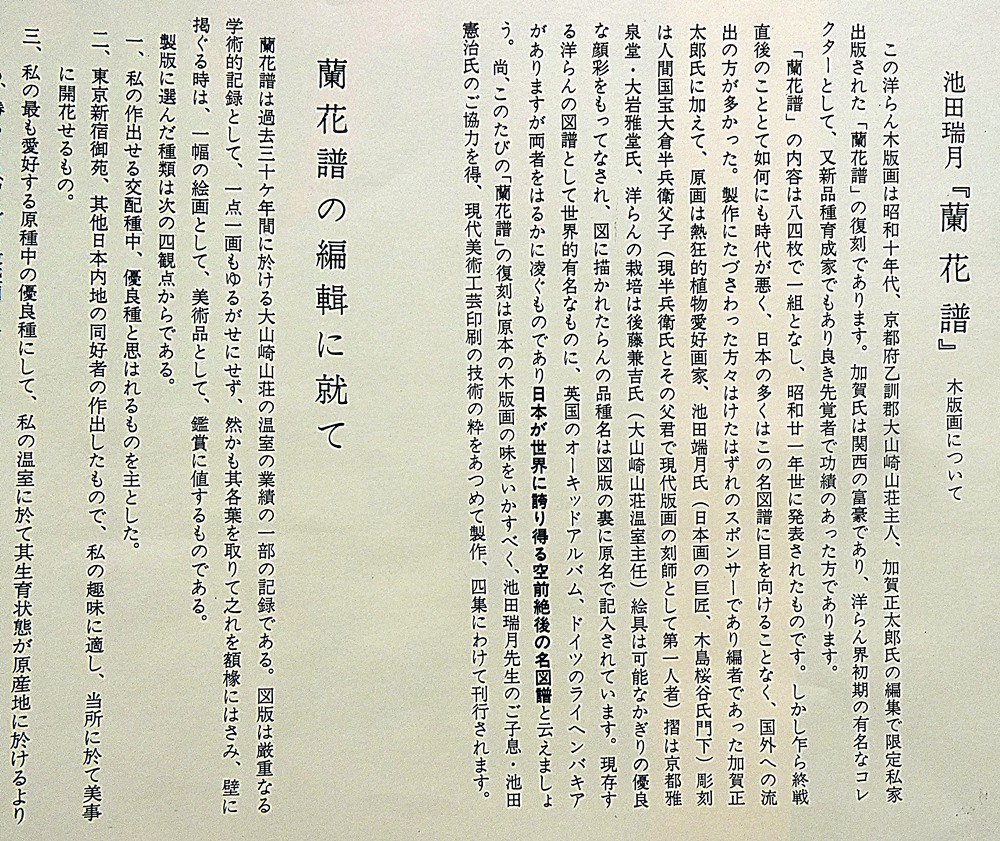 池田瑞月『蘭花譜』 木版画について
この洋らん木版画は昭和十年代、京都府乙訓郡大山崎山荘主人、加賀正太郎氏の編集で限定私家
出版された「蘭花譜」の復刻であります。加賀氏は関西の富豪であり、洋らん界初期の有名なコレ
クターとして、又新品種育成家でもあり良き先覚者で功績のあった方であります。
「蘭花譜」の内容は八四枚で一組となし、昭和廿一年世に発表されたものです。しかし乍ら終戦
直後のこととて如何にも時代が悪く、日本の多くはこの名図譜に目を向けることなく、国外への流
出の方が多かった。製作にたづさわった方々はけたはずれのスポンサーであり編者であった加賀正
太郎氏に加えて、原画は熱狂的植物愛好画家、池田端月氏（日本画の巨匠、木島桜谷氏門下）彫刻
は人間国宝大倉半兵衛父子（現半兵衛氏とその父君で現代版画の刻師として第一人者）摺は京都雅
泉堂・大岩雅堂氏、洋らんの栽培は後藤兼吉氏（大山崎山荘温室主任）絵具は可能なかぎりの優良
な顔彩をもってなされ、図に描かれたらんの品種名は図版の裏に原名で記入されています。現存す
る洋らんの図譜として世界的有名なものに、英国のオーキッドアルバム、ドイツのライヘンバキア
がありますが両者をはるかに凌ぐものであり日本が世界に誇り得る空前絶後の名図譜と云えましょ
う。尚、このたびの「蘭花譜」の復刻は原本の木版画の味をいかすべく、池田瑞月先生のご子息・池田
憲治氏のご協力を得、現代美術工芸印刷の技術の粋をあつめて製作、四集にわけて刊行されます。
蘭花譜の編輯に就て
蘭花譜は過去三十ケ年間に於ける大山崎山荘の温室の業績の一部の記録である。図版は厳重なる
学術的記録として、一点一画もゆるがせにせず、然かも其各葉を取りて之れを額椽にはさみ、壁に
掲ぐる時は、一幅の絵画として、美術品として、鑑賞に値するものである。
製版に選んだ種類は次の四観点からである。
一、私の作出せる交配種中、優良種と思はれるものを主とした。
二、東京新宿御苑、其他日本内地の同好者の作出したもので、私の趣味に適し、当所に於て美事
に開花せるもの。
三、私の最も愛好する原種中の優良種にして、私の温室に於て其生育状態が原産地に於けるより